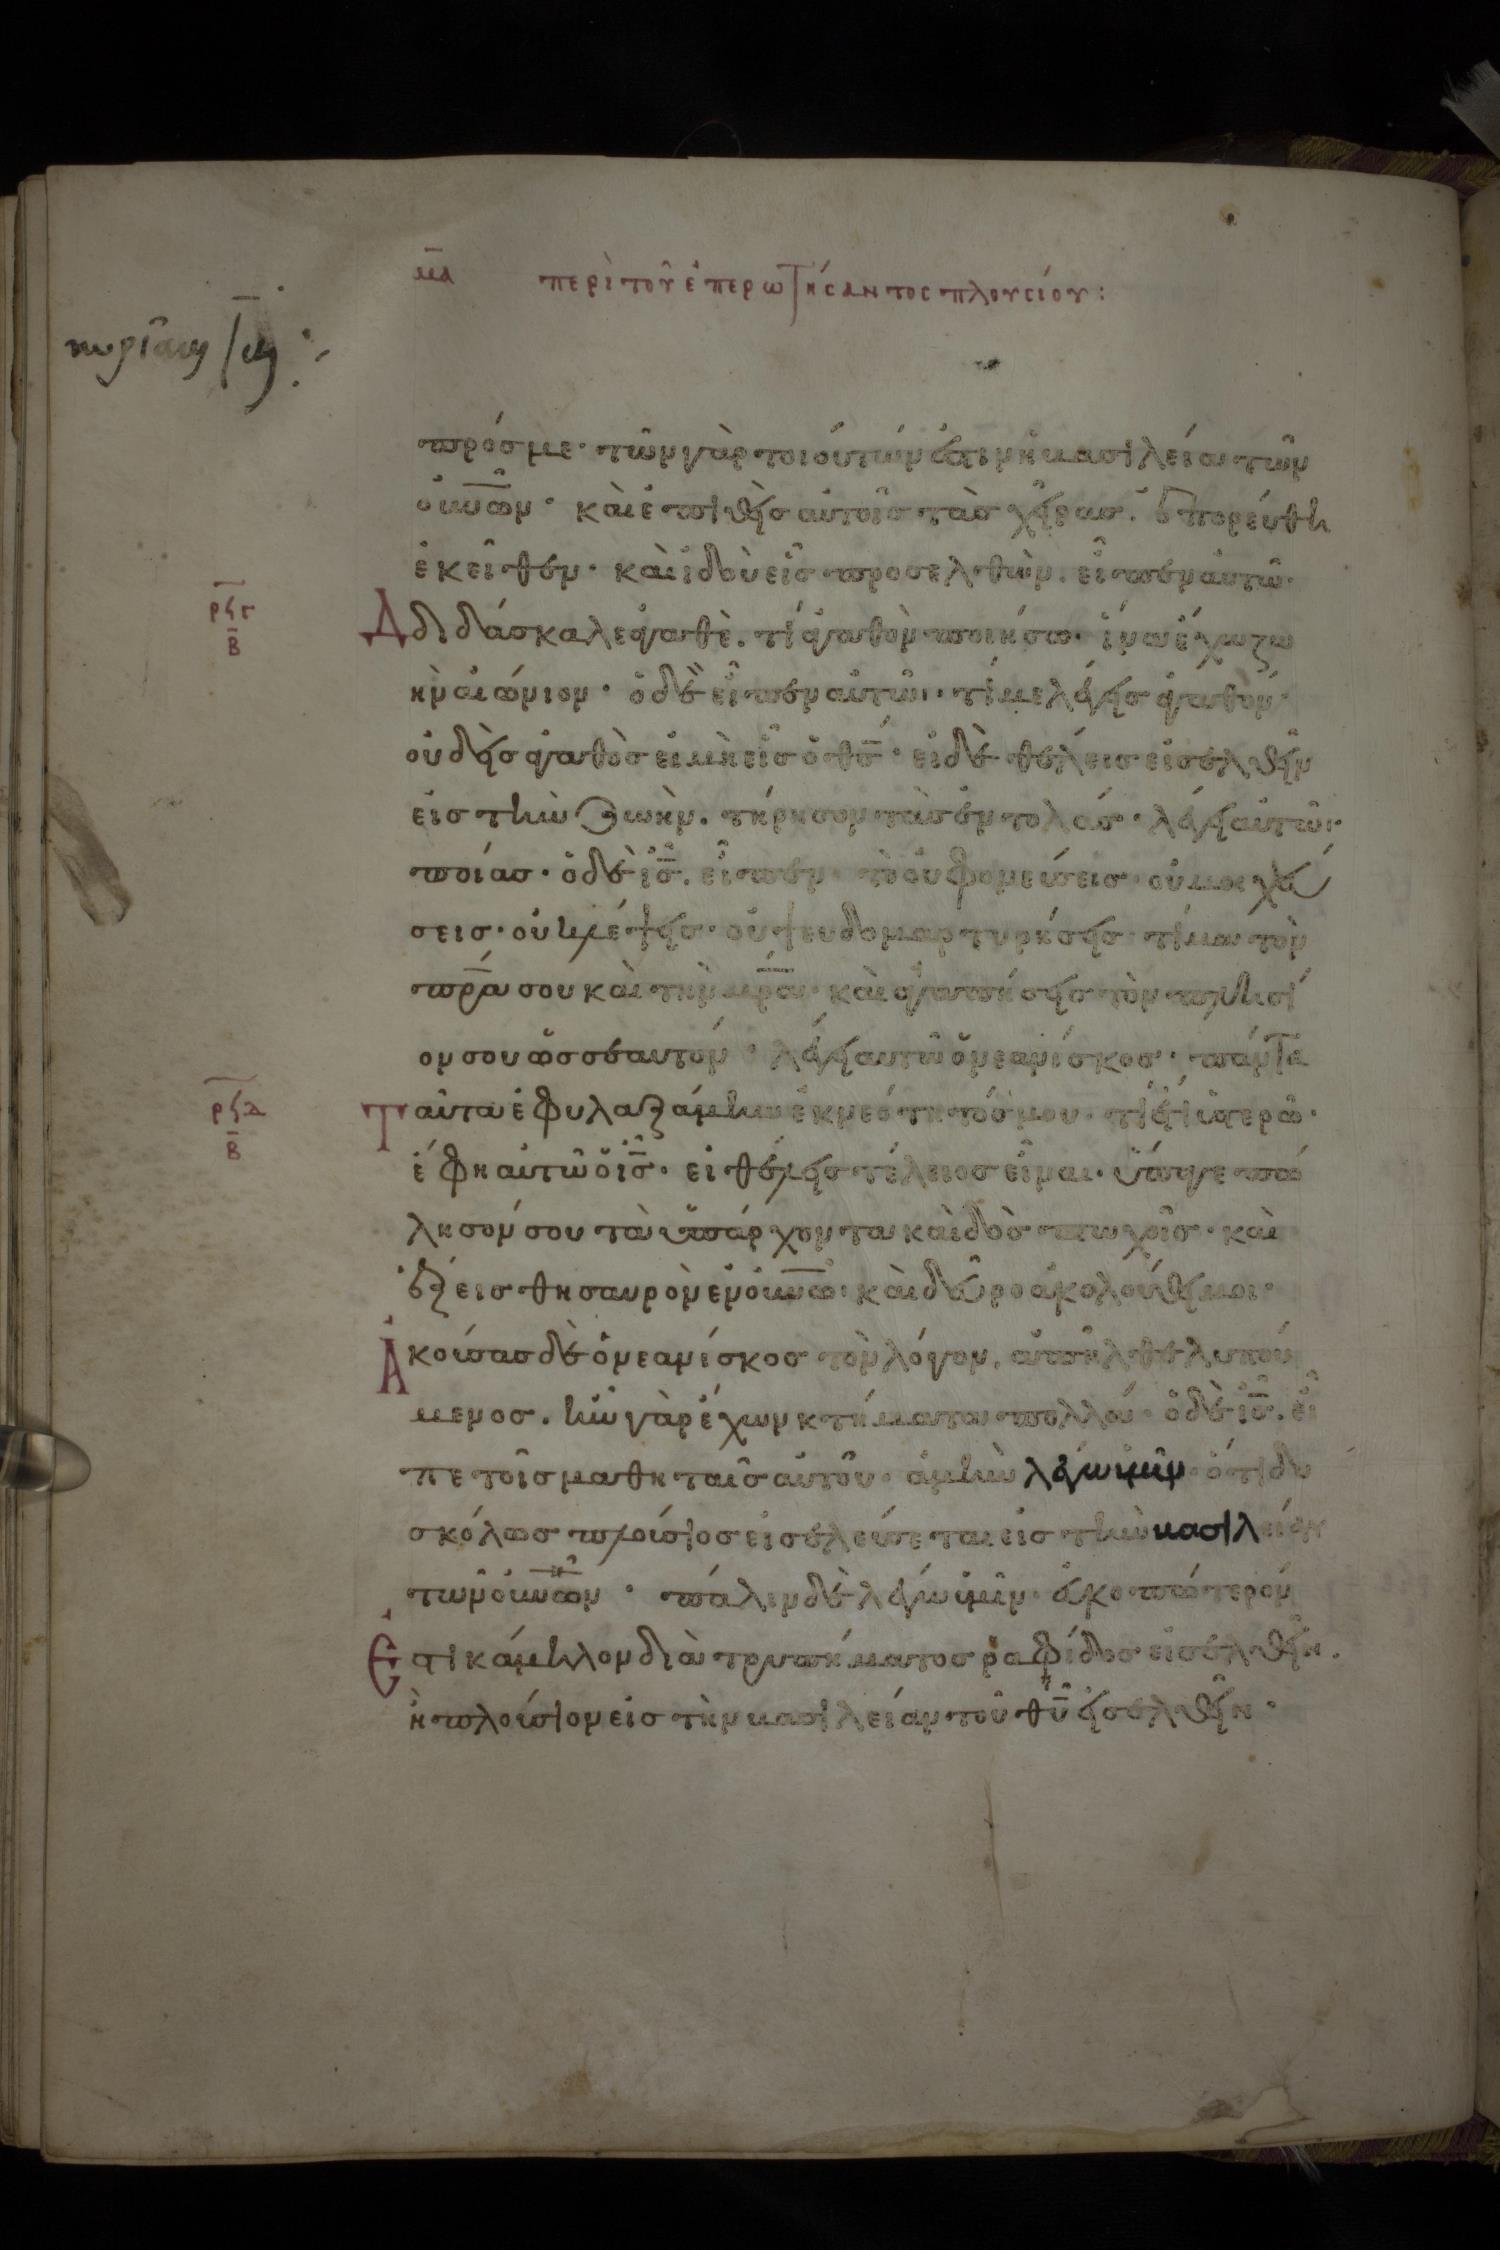 μα περὶ τοῦ ἐπερωτήσαντος πλουσίου:
κυριακη ιβ:
πρός με· τῶν γὰρ τοιούτων ἐστιν ἡ βασιλεία τῶν
οὐνῶν· καὶ ἐπιθεὶς αὐτοῖς τὰς χεῖρας. ἐπορεύθη
ἐκεῖθεν· καὶ ἰδοὺ εἷς προσελθὼν. εἶπεν αυτῶ·
ρϟγ
β
Δ διδάσκαλε ἀγαθὲ. τί ἀγαθὸν ποιήσω· ἵνα ἔχω ζω
ὴν αἰώνιον· ὁ δὲ εἶπεν αὐτῶ· τί με λέγεις ἀγαθόν·
οὐδεὶς ἀγαθὸς εἰ μὴ εἷς ὁ θς· εἰ δὲ θέλεις εἰσελθεῖν
εἰς τὴν ζωὴν. τήρησον τὰς ἐντολάς· λέγει αὐτῶ·
ποίας· ὁ δὲ ις. εἶπεν· τὸ οὐ φονεύσεις· οὐ μοιχεύ
σεις· οὐ κλέψεις· οὐ ψευδομαρτυρήσεις· τίμα τὸν
πρα σου καὶ τὴν μρα· καὶ ἀγαπήσεις τὸν πλησί
ον σου ὡς σεαυτόν· λέγει αυτῶ ὁ νεανίσκος· πάντα
ρϟδ
β
Ταῦτα ἐφυλαξάμην ἐκ νεότητός μου· τί ἔτι ὑστερῶ·
ἔφη αὐτῶ ὁ ις· εἰ θέλεις τέλειος εἶναι· ὕπαγε πώ
λησόν σου τὰ ὑπάρχοντα καὶ δὸς πτωχοῖς· καὶ
ἕξεις θησαυρὸν ἐν οὐνῶ· καὶ δεῦρο ἀκολούθει μοι·
Ἀκούσας δὲ ὁ νεανίσκος τὸν λόγον, ἀπῆλθε λυπού
μενος. ἦν γὰρ ἔχων κτήματα πολλά· ὁ δὲ ις. εἶ
πε τοῖς μαθηταῖς αὐτοῦ· ἀμὴν λέγω ὑμῖν· ὅτι δυ
σκόλως πλούσιος εἰσελεύσεται εἰς τὴν βασιλείαν
τῶν οὐνῶν· πάλιν δὲ λέγω ὑμῖν· εὐκοπώτερόν
Ἐστι κάμηλον διὰ τρυπήματος ραφίδος εἰσελθεῖν.
ἢ πλούσιον εἰς τὴν βασιλείαν τοῦ θυ εἰσελθεῖν·